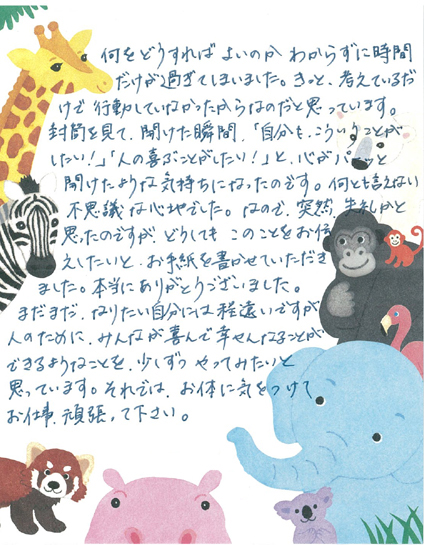 何をどうすれば よいのか わからずに時間
だけが過ぎてしまいました。きっと、考えているだ
けで 行動していなかったからなのだと思っています。
封筒を見て、開けた瞬間、「自分も、こういうことが
したい!」「人の喜ぶことがしたい!」と、心がパーッと
開けたような気持ちになったのです。何とも言えない
不思議な心地でした。なので、突然、失礼かと
思ったのですが、どうしても このことをお伝
えしたいと、お手紙を書かせていただき
ました。本当にありがとうございました。
まだまだ、なりたい自分には 程遠いですが
人のために、みんなが喜んで幸せになることが、
できるようなことを、少しずつ やってみたいと
思っています。それでは、お体に気をつけて
お仕事、頑張って下さい。